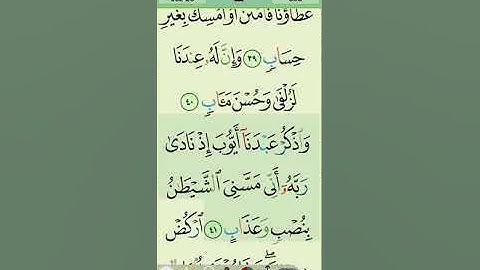 عَطَآؤُنَا فَٱمْنُنْ أَوْ أَمْسِكْ بِغَيْرِ
حِسَابٍ ٣٩ وَإِنَّ لَهُۥ عِندَنَا
لَزُلْفَىٰ وَحُسْنَ مَـَٔابٍ ٤٠
وَٱذْكُرْ عَبْدَنَآ أَيُّوبَ إِذْ نَادَىٰ
رَبَّهُۥٓ أَنِّى مَسَّنِىَ ٱلشَّيْطَـٰنُ
بِنُصْبٍ وَعَذَابٍ ٤١ ٱرْكُضْ